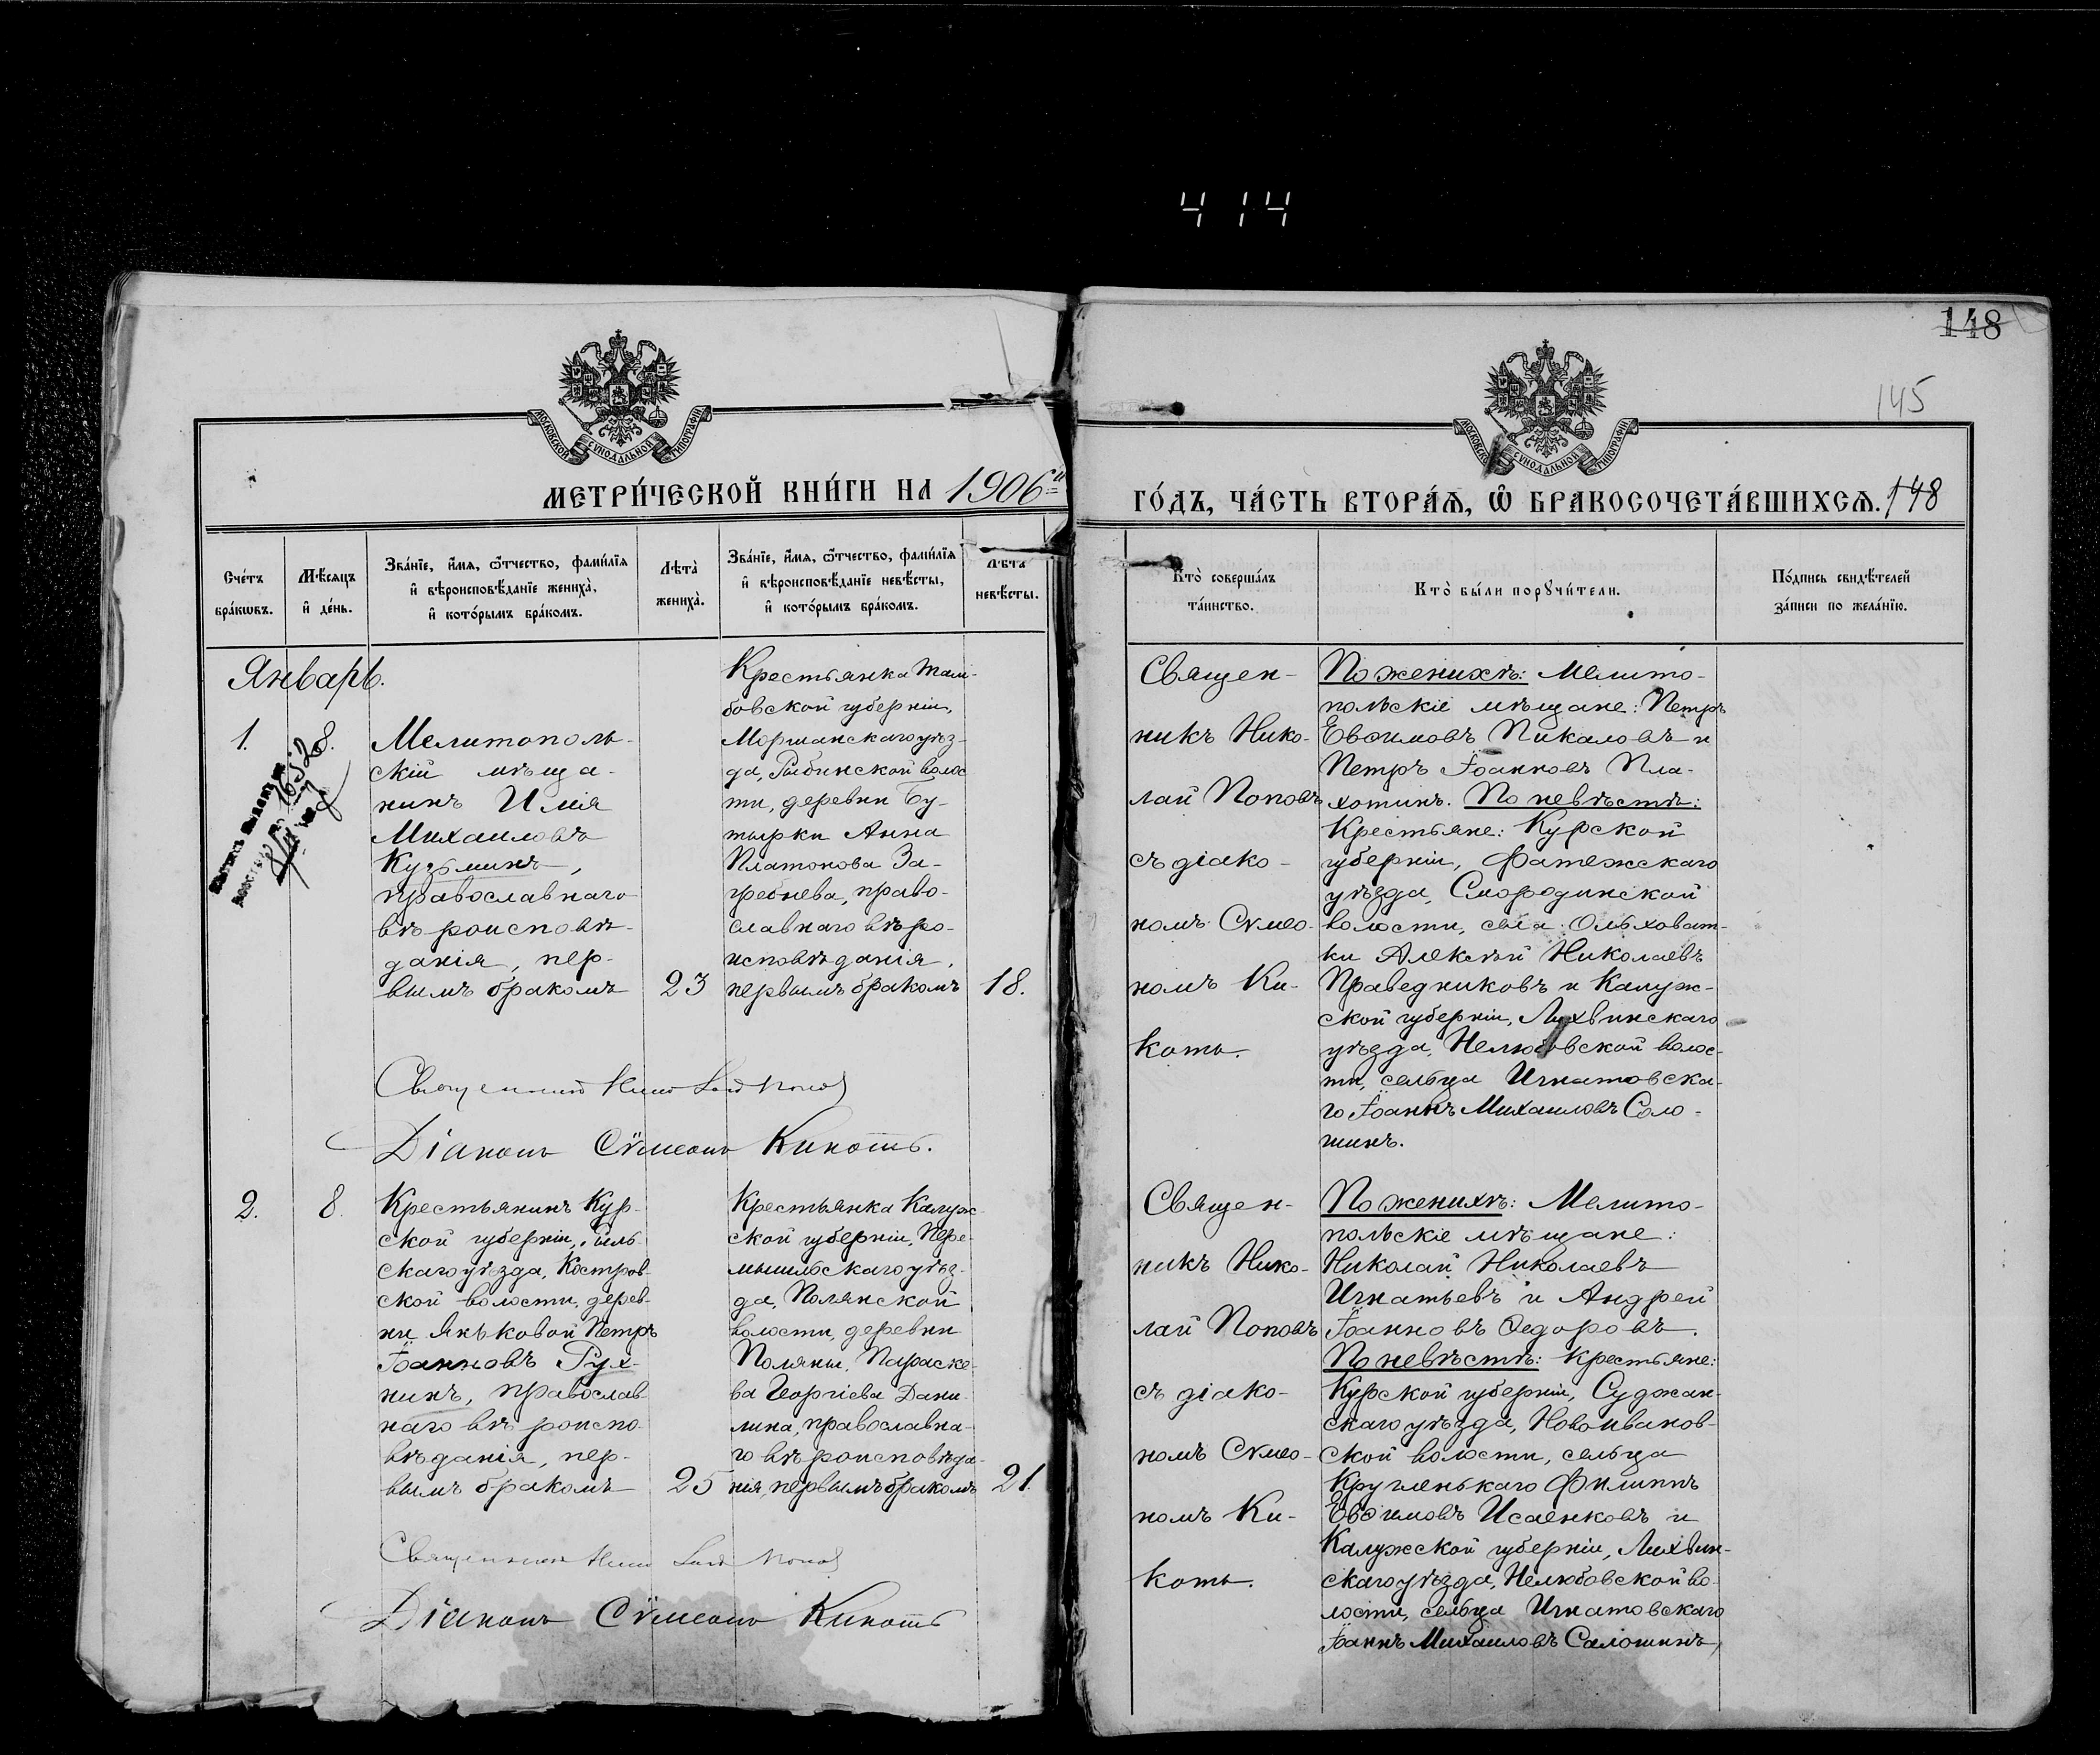 414
148
145
МОСКОВСКОЙ СѴНОДАЛЬНОЙ ТИПОГРАФІИ
МОСКОВСКОЙ СѴНОДАЛЬНОЙ ТИПОГРАФІИ
МЕТРИ́ЧЕСКОЙ КНИ́ГИ НА 1906=й
ГО́ДЪ, ЧА́СТЬ ВТОРА́Ѧ, Ѽ БРАКОСОЧЕТА́ВШИХСѦ. 148
Сче́тъ
бра́кѡвъ.
Мѣ́сѧцъ
и҆ де́нь.
Зва́нїе, и҆́мѧ, ѻ҆́тчество, фами́лїѧ
и҆ вѣроисповѣ́данїе жениха̀,
и҆ кото́рымъ бра́комъ.
Лѣ́та̀
жениха̀.
Зва́нїе, и҆́мѧ, ѻ҆́тчество, фами́лїѧ
и҆ вѣроисповѣ́данїе невѣ́сты,
и҆ кото́рымъ бра́комъ.
Лѣ́та̀
невѣ́сты.
Кто̀ соверша́лъ
та́инство.
Кто̀ бы́ли порꙋчи́тели.
По́дпись свидѣ́телей
за́писи по жела́нїю.
Январь.
1.
8.
Мелитополь-
скій мѣща-
нинъ Илія
Михаиловъ
Кузьминъ,
православнаго
вѣроисповѣ-
данія, пер-
вымъ бракомъ
23
Крестьянка Там-
бовской губерніи,
Моршанскаго уѣз-
да, Рыбинской волос
ти, деревни Бу-
тырки Анна
Платонова За-
гребнева, право-
славнаго вѣро-
исповѣданія,
первымъ бракомъ
18.
Священ-
никъ Нико-
лай Поповъ
съ діако-
номъ Сѵмео-
номъ Ки-
котъ.
По женихѣ: Мелито-
польскіе мѣщане: Петръ
Евѳимовъ Пикаловъ и
Петръ Іоанновъ Пла-
хотинъ. По невѣстѣ:
Крестьяне: Курской
губерніи, Фатежскаго
уѣзда, Смородинской
волости, села Ольховат-
ки Алексѣй Николаевъ
Праведниковъ и Калуж-
ской губерніи, Лихвинскаго
уѣзда, Нелюбовской волос-
ти, сельца Игнатовска-
го Іоаннъ Михаиловъ Соло-
шинъ.
Священникъ Николай Поповъ
Діаконъ Сѵмеонъ Кикотъ.
2.
8.
Крестьянинъ Кур-
ской губерніи, Рыль-
скаго уѣзда, Костров-
ской волости, дерев-
ни Яньковой Петръ
Іоанновъ Рух-
нинъ, православ-
наго вѣроиспо-
вѣданія, пер-
вымъ бракомъ
25
Крестьянка Калуж-
ской губерніи, Пере-
мышльскаго уѣз-
да, Полянской
волости, деревни
Поляны, Параске-
ва Георгіева Дани-
лина, православна-
го вѣроисповѣда-
нія, первымъ бракомъ
21.
Священ-
никъ Нико-
лай Поповъ
съ діако-
номъ Сѵмео-
номъ Ки-
котъ.
По женихѣ: Мелито-
польскіе мѣщане:
Николай Николаевъ
Игнатьевъ и Андрей
Іоанновъ Ѳедоровъ.
По невѣстѣ: крестьяне:
Курской губерніи, Суджан-
скаго уѣзда, Новоиванов-
ской волости, сельца
Кругленькаго Филиппъ
Евѳимовъ Исаенковъ и
Калужской губерніи, Лихвин-
скаго уѣзда, Нелюбовской во-
лости, сельца Игнатовскаго
Іоаннъ Михаиловъ Салошинъ,
Священникъ Николай Поповъ
Діаконъ Сѵмеонъ Кикотъ